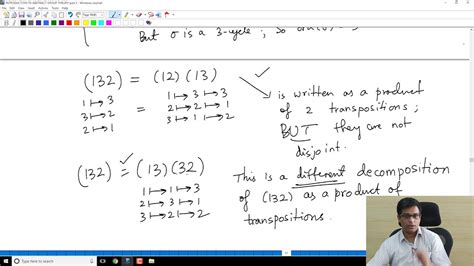 But σ is a 3-cycle ; so
(132) = (12) (13) ✓
1 ↦ 3 = 1 ↦ 3 ↦ 3
3 ↦ 2 2 ↦ 2 ↦ 1
2 ↦ 1 3 ↦ 1 ↦ 2
is written as a product
of 2 transpositions ;
BUT they are not
disjoint.
(132) = (13) (32)
1 ↦ 1 ↦ 3
2 ↦ 3 ↦ 1
3 ↦ 2 ↦ 2
This is a different decomposition
of (132) as a product of
transpositions.